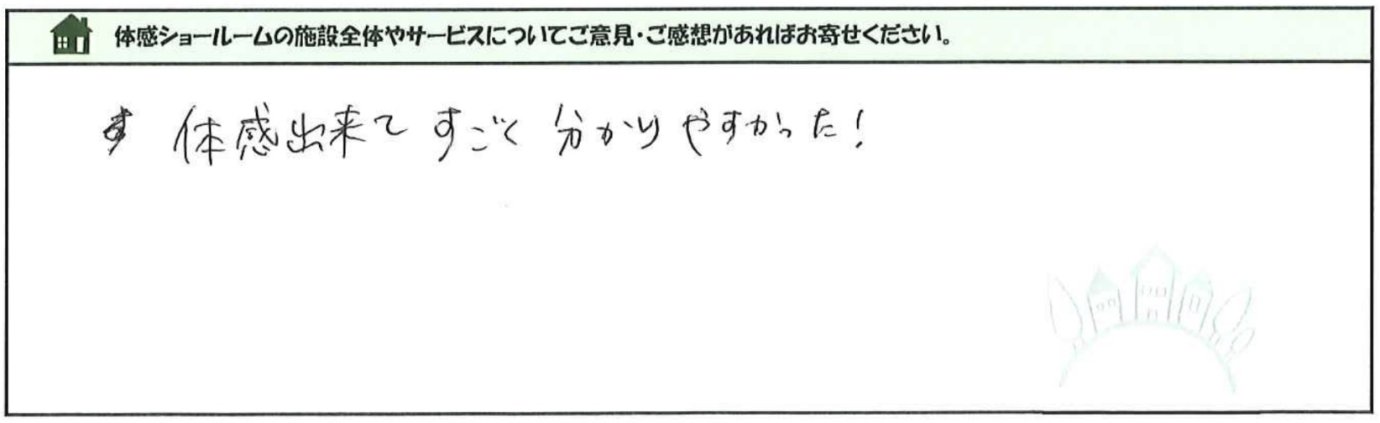 体感ショールームの施設全体やサービスについてご意見・ご感想があればお寄せください。
体感出来て すごく 分かりやすかった!